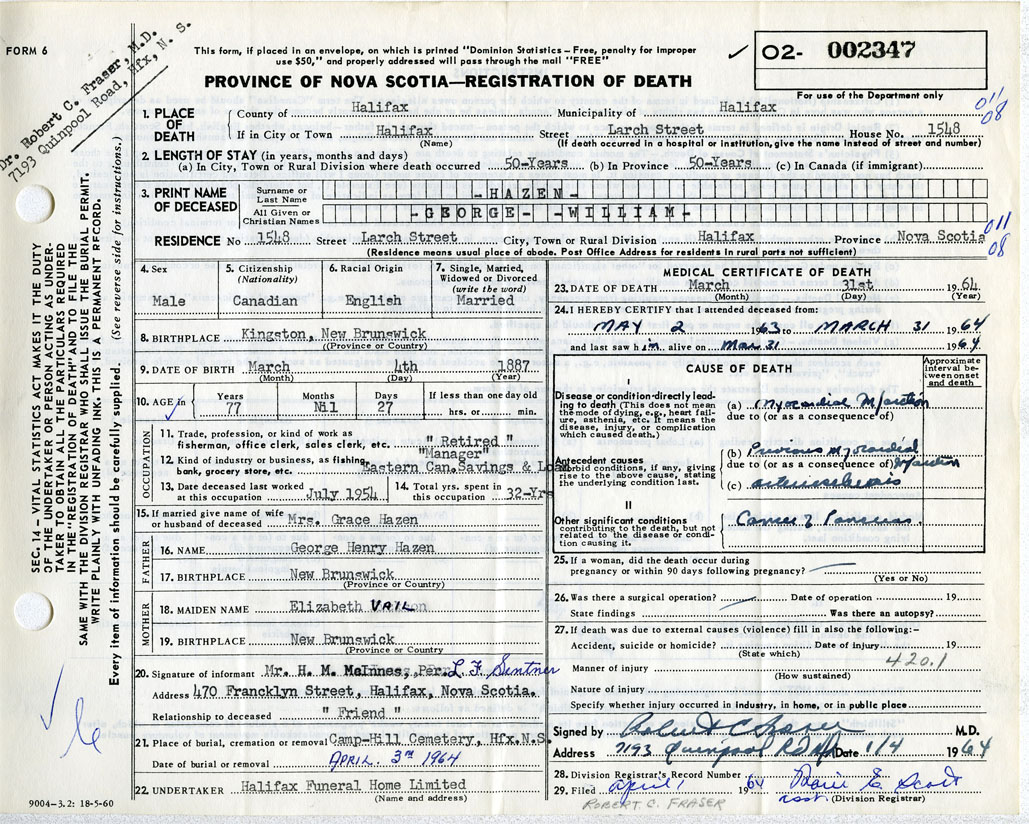 FORM 6
Dr. Robert C. Fraser, M.D.
7193 Quinpool Road, Hfx, N. S.
This form, if placed in an envelope, on which is printed "Dominion Statistics—Free, penalty for improper
use $50," and properly addressed will pass through the mail "FREE"
PROVINCE OF NOVA SCOTIA—REGISTRATION OF DEATH
✓ O2- 002347
For use of the Department only
011
08
SEC. 14 – VITAL STATISTICS ACT MAKES IT THE DUTY
OF THE UNDERTAKER OR PERSON ACTING AS UNDER-
TAKER TO OBTAIN ALL THE PARTICULARS REQUIRED
IN THE "REGISTRATION OF DEATH" AND TO FILE THE
SAME WITH THE DIVISION REGISTRAR WHO SHALL ISSUE THE BURIAL PERMIT.
WRITE PLAINLY WITH UNFADING INK. THIS IS A PERMANENT RECORD.
Every item of information should be carefully supplied. (See reverse side for instructions.)
1. PLACE OF DEATH
County of Halifax Municipality of Halifax
If in City or Town Halifax Street Larch Street House No. 1548
(Name) (If death occurred in a hospital or institution, give the name instead of street and number)
2. LENGTH OF STAY (in years, months and days)
(a) In City, Town or Rural Division where death occurred 50-Years (b) In Province 50-Years (c) In Canada (if immigrant)
3. PRINT NAME OF DECEASED
Surname or Last Name -HAZEN-
All Given or Christian Names -GEORGE- -WILLIAM-
011
08
RESIDENCE No 1548 Street Larch Street City, Town or Rural Division Halifax Province Nova Scotia
(Residence means usual place of abode. Post Office Address for residents in rural parts not sufficient)
4. Sex
Male
5. Citizenship
(Nationality)
Canadian
6. Racial Origin
English
7. Single, Married,
Widowed or Divorced
(write the word)
Married
8. BIRTHPLACE Kingston, New Brunswick
(Province or Country)
9. DATE OF BIRTH March 4th 1887
(Month) (Day) (Year)
10. AGE in Years Months Days If less than one day old
✓ 77 Nil 27 hrs. or min.
OCCUPATION
11. Trade, profession, or kind of work as
fisherman, office clerk, sales clerk, etc. " Retired "
"Manager"
12. Kind of industry or business, as fishing,
bank, grocery store, etc. Eastern Can.Savings & Loan
13. Date deceased last worked
at this occupation July 1954
14. Total yrs. spent in
this occupation 32-Yrs
15. If married give name of wife
or husband of deceased Mrs. Grace Hazen
FATHER
16. NAME George Henry Hazen
17. BIRTHPLACE New Brunswick
(Province or Country)
MOTHER
18. MAIDEN NAME Elizabeth VAIL
19. BIRTHPLACE New Brunswick
(Province or Country
20. Signature of informant Mr. H. M. McInnes, Per. L. F. Sentner
Address 470 Francklyn Street, Halifax, Nova Scotia.
Relationship to deceased " Friend "
21. Place of burial, cremation or removal Camp-Hill Cemetery, Hfx.N.S.
Date of burial or removal APRIL. 3rd 1964
22. UNDERTAKER Halifax Funeral Home Limited
(Name and address)
9004-3.2: 18-5-60
MEDICAL CERTIFICATE OF DEATH
23. DATE OF DEATH March 31st 1964
(Month) (Day) (Year)
24. I HEREBY CERTIFY that I attended deceased from:
MAY 2 1963 to MARCH 31 1964
and last saw him alive on Mar 31 1964
CAUSE OF DEATH
Approximate
interval be-
tween onset
and death
I
Disease or condition directly lead-
ing to death (This does not mean
the mode of dying, e.g., heart fail-
ure, asthenia, etc. It means the
disease, injury, or complication
which caused death.)
(a) Myocardial Infarction
due to (or as a consequence of)
Antecedent causes
Morbid conditions, if any, giving
rise to the above cause, stating
the underlying condition last.
(b) Previous Myocardial
due to (or as a consequence of) Infarction
(c) arteriosclerosis
II
Other significant conditions
contributing to the death, but not
related to the disease or condi-
tion causing it.
Cancer of Pancreas.
25. If a woman, did the death occur during
pregnancy or within 90 days following pregnancy?
(Yes or No)
26. Was there a surgical operation? Date of operation 19
State findings Was there an autopsy?
27. If death was due to external causes (violence) fill in also the following:-
Accident, suicide or homicide? Date of injury 19
(State which)
420.1
Manner of injury
(How sustained)
Nature of injury
Specify whether injury occurred in industry, in home, or in public place
Signed by Robert C Fraser M.D.
Address 7193 Quinpool Rd Hfx Date 1/4 1964
28. Division Registrar's Record Number
29. Filed April 1 1964
(Division Registrar)
ROBERT C. FRASER